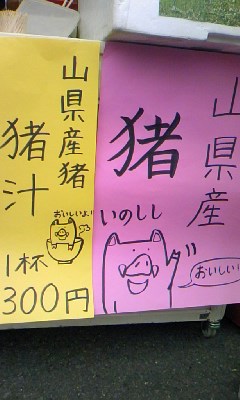 山県産猪
猪汁
おいしいよ!
1杯
300円
山県産
猪
いのしし
おいしい!